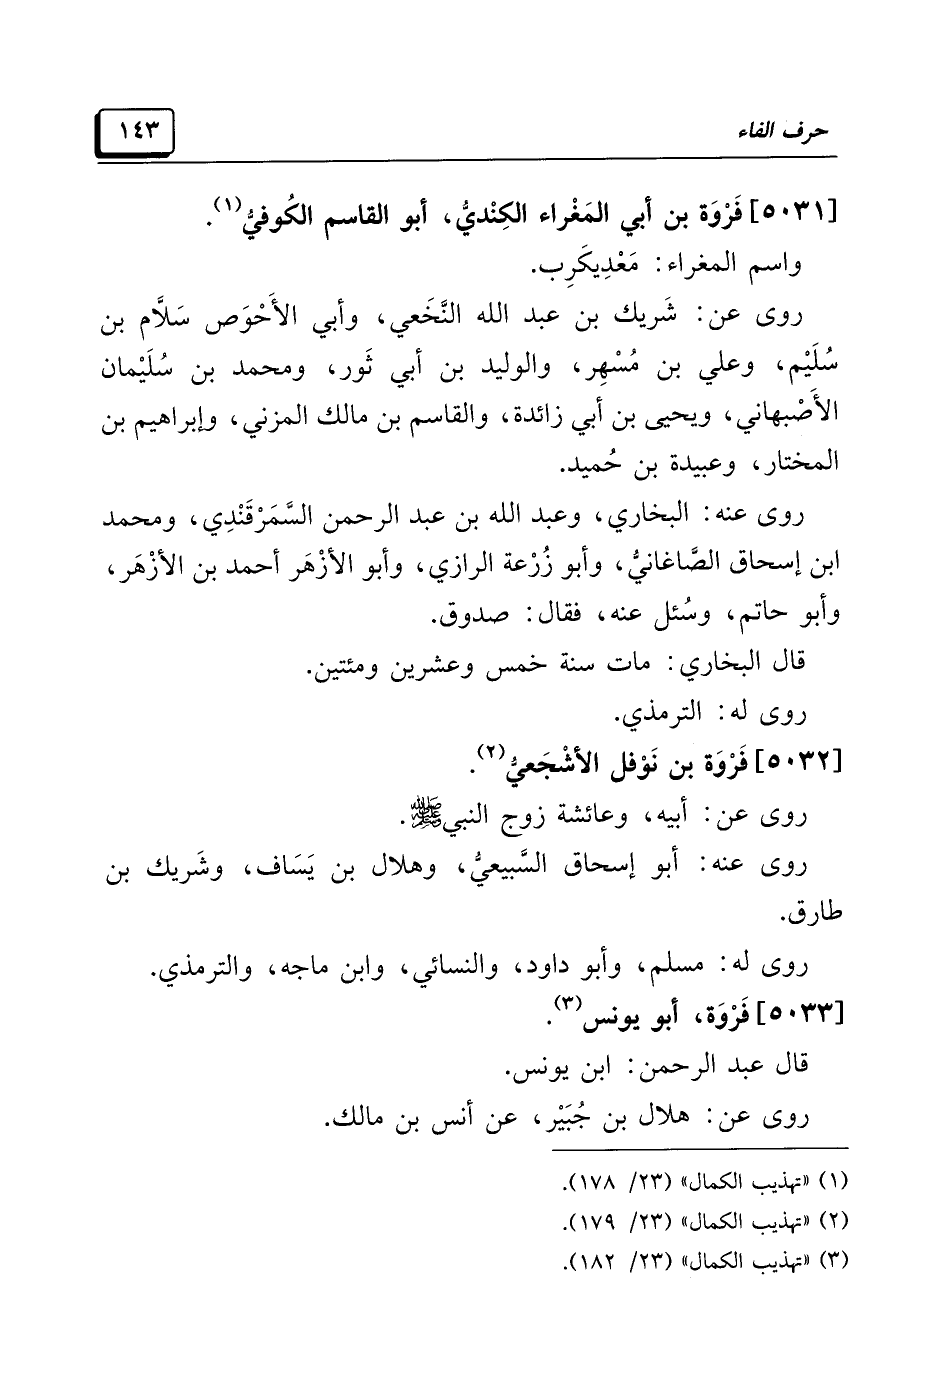 حرف الفاء
١٤٣
[٥٠٣١] فَرْوَة بن أبي المَغْراء الكِنْديُّ، أبو القاسم الكُوفيُّ(١).
واسم المغراء: مَعْدِيكَرِب.
روى عن: شَريك بن عبد الله النَّخَعي، وأبي الأَحْوَص سَلَّام بن
سُلَيْم، وعلي بن مُسْهِر، والوليد بن أبي ثَور، ومحمد بن سُلَيْمان
الأَصْبهاني، ويحيى بن أبي زائدة، والقاسم بن مالك المزني، وإبراهيم بن
المختار، وعبيدة بن حُميد.
روى عنه: البخاري، وعبد الله بن عبد الرحمن السَّمَرْقَنْدِي، ومحمد
ابن إسحاق الصَّاغانيُّ، وأبو زُرْعة الرازي، وأبو الأزْهَر أحمد بن الأزْهَر،
وأبو حاتم، وسُئل عنه، فقال: صدوق.
قال البخاري: مات سنة خمس وعشرين ومئتين.
روى له: الترمذي.
[٥٠٣٢] فَرْوَة بن نَوْفل الأشْجَعيُّ(٢).
روى عن: أبيه، وعائشة زوج النبي ﷺ.
روى عنه: أبو إسحاق السَّبيعيُّ، وهلال بن يَسَاف، وشَريك بن
طارق.
روى له: مسلم، وأبو داود، والنسائي، وابن ماجه، والترمذي.
[٥٠٣٣] فَرْوَة، أبو يونس(٣).
قال عبد الرحمن: ابن يونس.
روى عن: هلال بن جُبَيْر، عن أنس بن مالك.
(١) «تهذيب الكمال» (٢٣/ ١٧٨).
(٢) «تهذيب الكمال» (٢٣/ ١٧٩).
(٣) «تهذيب الكمال» (٢٣/ ١٨٢).